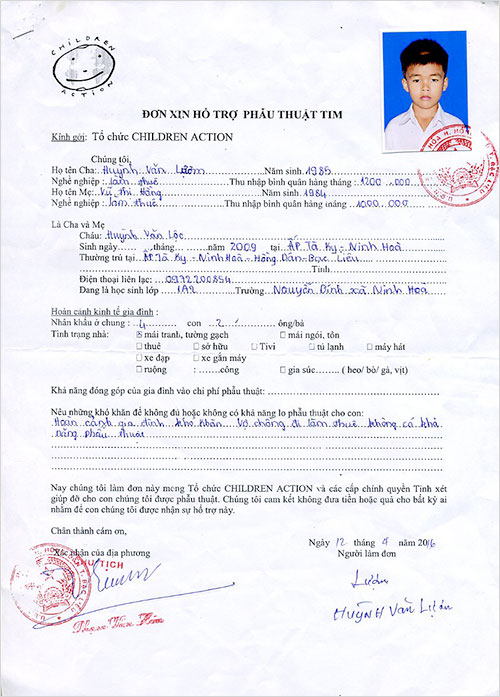 CHILDREN ACTION
ĐƠN XIN HỖ TRỢ PHẪU THUẬT TIM
Kính gởi: Tổ chức CHILDREN ACTION
Chúng tôi
Họ tên Cha: Huỳnh Văn Lượm Năm sinh 1985
Nghề nghiệp: làm thuê Thu nhập bình quân hàng tháng: 1200.000
Họ tên Mẹ: Vũ Thị Hồng Năm sinh 1984
Nghề nghiệp: làm thuê Thu nhập bình quân hàng tháng 1000.000
Là Cha và Mẹ
Cháu: Huỳnh Văn Lộc
Sinh ngày tháng năm 2009 tại ẤP. Tà Ky - Ninh Hoà
Thường trú tại ẤP. Tà Ky - Ninh Hoà - Hồng Dân - Bạc Liêu
Tỉnh
Điện thoại liên lạc: 0972700854
Đang là học sinh lớp 1A2 Trường Nguyễn Đính xã Ninh Hoà
Hoàn cảnh kinh tế gia đình :
Nhân khẩu ở chung : 4 con 2 ông/bà
Tình trạng nhà: ☒ mái tranh, tường gạch □ mái ngói, tôn
□ thuê □ sở hữu □ Tivi □ tủ lạnh □ máy hát
□ xe đạp □ xe gắn máy
□ ruộng : .......công □ gia súc....... ( heo/ bò/ gà, vịt)
Khả năng đóng góp của gia đình vào chi phí phẫu thuật:
Nêu những khó khăn để không đủ hoặc không có khả năng lo phẫu thuật cho con:
Hoàn cảnh gia đình khó khăn Vợ chồng đi làm thuê không có khả
năng phẫu thuật
Nay chúng tôi làm đơn này mong Tổ chức CHILDREN ACTION và các cấp chính quyền Tỉnh xét
giúp đỡ cho con chúng tôi được phẫu thuật. Chúng tôi cam kết không đưa tiền hoặc quà cho bất kỳ ai
nhằm để con chúng tôi được nhận sự hỗ trợ này.
Chân thành cám ơn,
Ngày 12 tháng 4 năm 2016
Xác nhận của địa phương Người làm đơn
CHỦ TỊCH
HUỲNH Văn Lượm